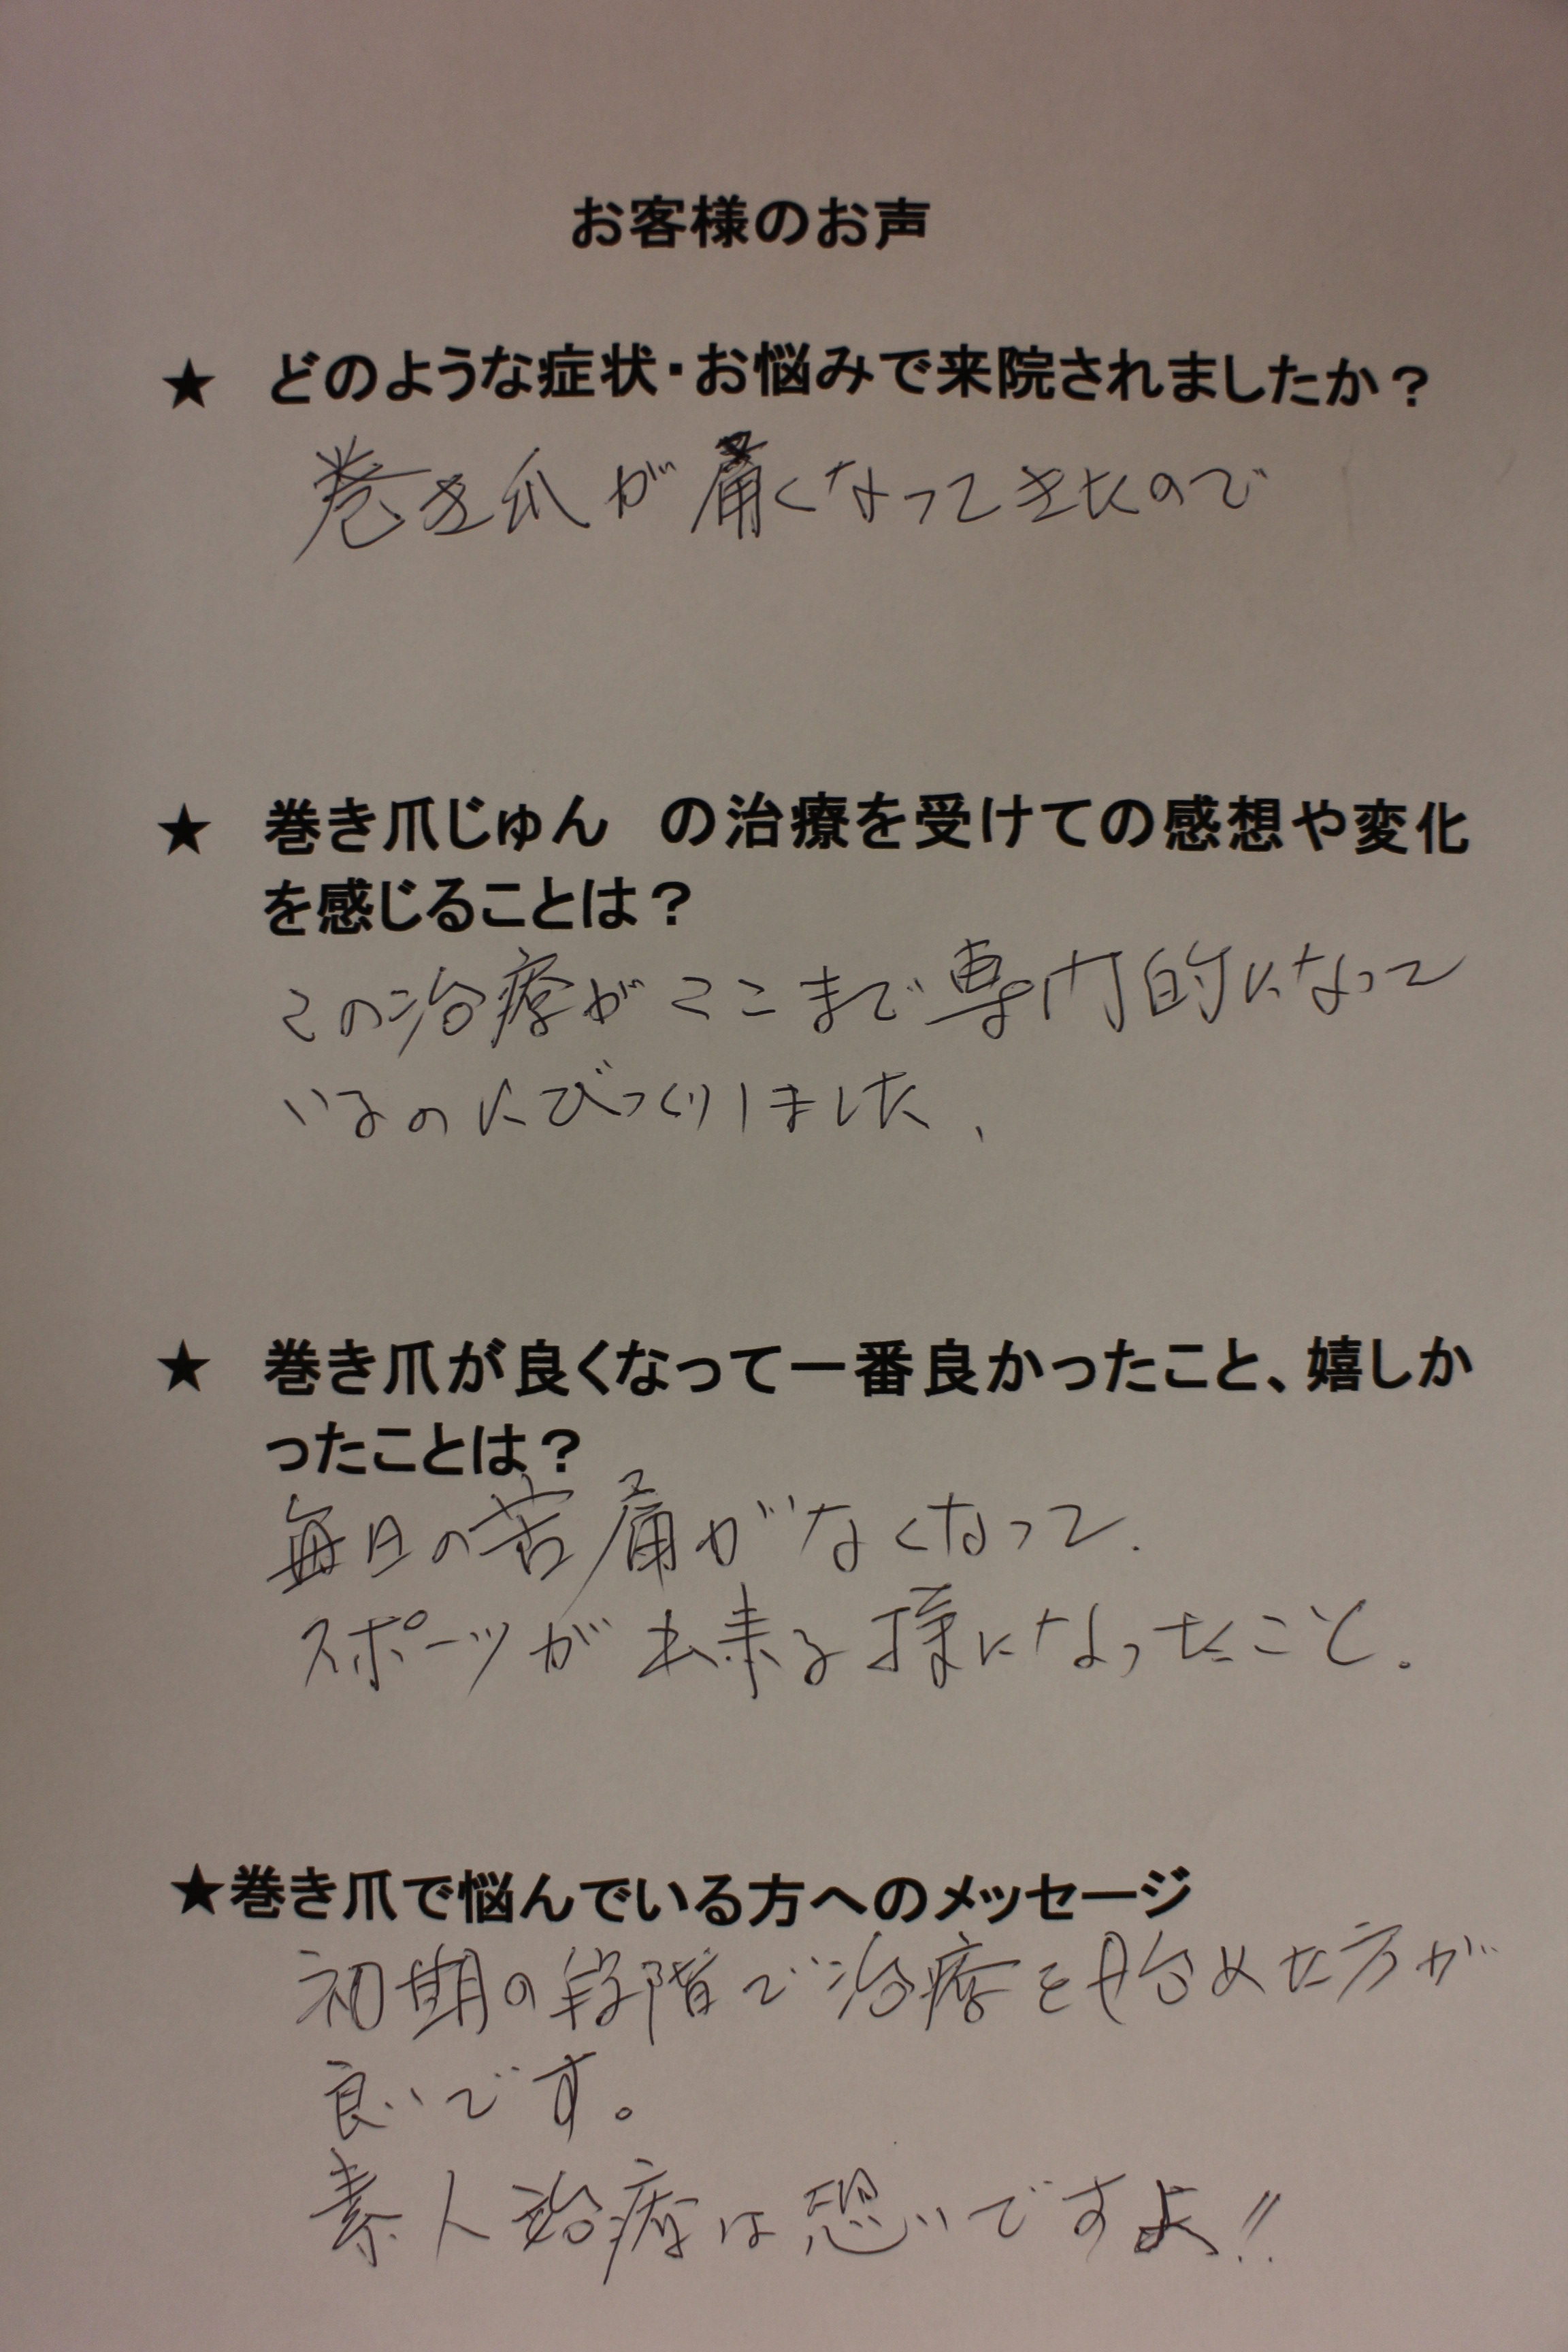 お客様のお声
★ どのような症状・お悩みで来院されましたか？
巻き爪が痛くなってきたので
★ 巻き爪じゅん　の治療を受けての感想や変化
を感じることは？
この治療がここまで専門的になって
いるのにびっくりしました、
★ 巻き爪が良くなって一番良かったこと、嬉しか
ったことは？
毎日の苦痛がなくなって.
スポーツが出来る様になったこと.
★巻き爪で悩んでいる方へのメッセージ
初期の段階で治療を始めた方が
良いです。
素人治療は恐いですよ!!